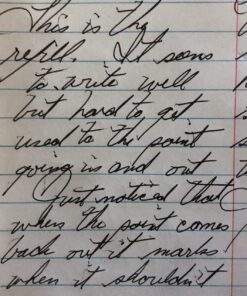 This is the
refill. It seems
to write well
but hard to get
used to the point
going in and out
Just noticed that
when the point comes
back out it marks
when it shouldn't